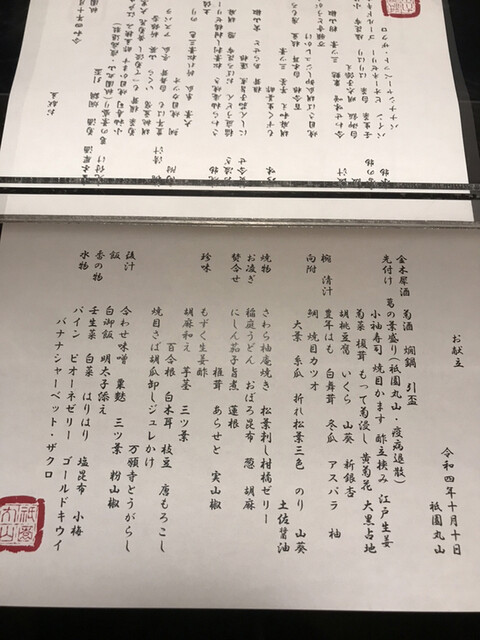 お献立
令和四年十月十日
祇園丸山
金木犀酒 菊酒 燗鍋 引盃
先付け 葛の葉盛り(祇園丸山・疫病退散)
小袖寿司 焼目かます 酢立挟み 江戸生姜
菊菜 椎茸 もって菊浸し 黄菊花 大黒占地
胡桃豆腐 いくら 山葵 新銀杏
椀 清汁 豊年はも 白舞茸 冬瓜 アスパラ 柚
向附 鯛 焼目カツオ
大葉 糸瓜 折れ松葉三色 のり 山葵
土佐醤油
焼物 さわら柚庵焼き 松葉刺し柑橘ゼリー
お凌ぎ 稲庭うどん おぼろ昆布 葱 胡麻
賛合せ にしん茄子旨煮 蓮根
椎茸 あらせと 実山椒
珍味 もずく生姜酢
胡麻和え 芋茎 三ツ葉
百合根 白木耳 枝豆 唐もろこし
焼目さば胡瓜卸しジュレかけ
万願寺とうがらし
止汁 合わせ味噌 粟麩 三ツ葉 粉山椒
飯 白御飯 明太子添え
香の物 壬生菜 白菜 はりはり 塩昆布 小梅
水物 パイン ピオーネゼリー ゴールドキウイ
バナナシャーベット・ザクロ